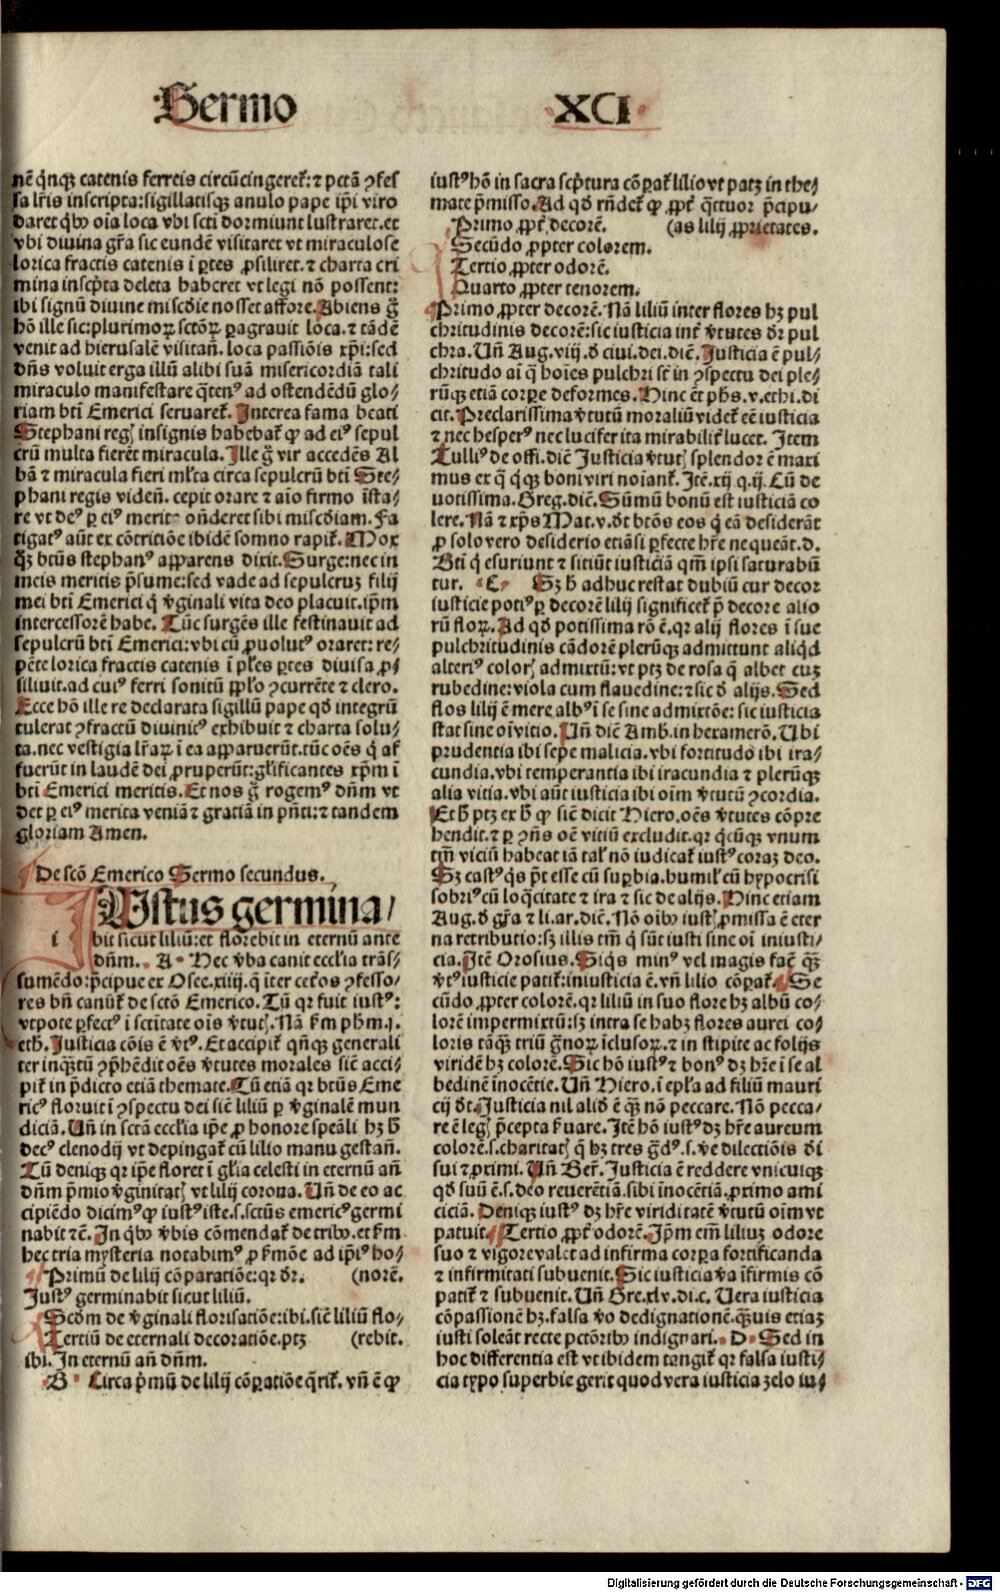 Sermo XCI
nē q̈nqꝫ catenis ferreis circūcingeret᷑: ⁊ pctā ꝯfes
sa lr̄is inscripta: sigillatisqꝫ anulo pape ip̄i viro
daret q̈bꝰ oīa loca vbi scti dormiunt lustraret. et
vbi diuina gr̄a sic eundē visitaret vt miraculose
lorica fractis catenis ī ꝑtes ꝓsiliret. ⁊ charta cri
mina inscp̄ta deleta haberet vt legi nō possent:
ibi signū diuine miscd̄ie nosset affore. Abiens g̊
hō ille sic: plurimoꝝ sctōꝝ ꝑagrauit loca. ⁊ tādē
venit ad hierusalē visitan̄. loca passiōis xp̄i: sed
dn̄s voluit erga illū alibi suā misericordiā tali
miraculo manifestare q̈tenꝰ ad ostendēdū glo-
riam bt̄i Emerici seruaret᷑. Interea fama beati
Stephani regꝭ insignis habebat᷑ ꝙ ad eiꝰ sepul
crū multa fierēt miracula. Ille g̊ vir accedēs Al
bā ⁊ miracula fieri ml̄ta circa sepulcrū bt̄i Ste-
phani regis viden̄. cepit orare ⁊ aīo firmo īsta-
re vt deꝰ ꝑ eiꝰ merit᷒ on̄deret sibi miscd̄iam. Fa
tigatꝰ aūt ex cōtritiōe ibidē somno rapit᷑. Mox
qꝫ bt̄us stephanꝰ apparens dixit. Surge: nec in
meis meritis p̄sume: sed vade ad sepulcruꝫ filij
mei bt̄i Emerici q̇ v̄ginali vita deo placuit. ip̄m
intercessorē habe. Tūc surgēs ille festinauit ad
sepulcrū bt̄i Emerici: vbi cū ꝓuolutꝰ oraret: re-
pēte lorica fractis catenis ī pl̄es ꝑtes diuisa ꝓ-
siliuit. ad cuiꝰ ferri sonitū ppl̄o ꝯcurrēte ⁊ clero.
Ecce hō ille re declarata sigillū pape qd̄ integrū
tulerat ꝯfractū diuinitꝰ exhibuit ⁊ charta solu-
ta. nec vestigia lr̄aꝝ ī ea apparuerūt. tūc oēs q̇ af
fuerūt in laudē dei ꝓruperūt: gl̄ificantes xp̄m ī
bt̄i Emerici meritis. Et nos g̊ rogemꝰ dn̄m vt
det ꝑ eiꝰ merita veniā ⁊ gratiā in pn̄ti: ⁊ tandem
gloriam Amen.
De scō Emerico Sermo secundus.
IVstus germina/
i bit sicut liliū: et florebit in eternū ante
dn̄m. A Hec v̄ba canit eccl̄ia trās-
sumēdo: p̄cipue ex Osee. xiiij. q̄ īter cet̄os ꝯfesso-
res bn̄ canūt᷑ de sctō Emerico. Tū qr fuit iustꝰ:
vtpote ꝑfectꝰ ī sctītate oīs v̄tutꝭ. Nā ẜm ph̄m. j.
eth̄. Justicia cōis ē v̄tꝰ. Et accipit᷑ qn̄qꝫ generali
ter inq̈tū ꝯp̄hēdit oēs v̄tutes morales sic̄ acci-
pit᷑ in p̄dicto etiā themate. Tū etiā qr bt̄us Eme
ricꝰ floruit ī ꝯspectu dei sic̄ liliū ꝑ v̄ginalē mun
diciā. Un̄ in sctā eccl̄ia ip̄e ꝓ honore spēali hꝫ h̄
decꝰ clenodij vt depingat᷑ cū lilio manu gestan̄.
Tū deniqꝫ qr ip̄e floret ī gl̄ia celesti in eternū an̄
dn̄m p̄mio v̄ginitatꝭ vt lilij corona. Un̄ de eo ac
cipiēdo dicimꝰ ꝙ iustꝰ iste. s. sctūs emericꝰ germi
nabit ⁊c̄. In q̈bꝰ v̄bis cōmendat᷑ de tribꝰ. et ẜm
hec tria mysteria notabimꝰ ꝓ ẜmōe ad ip̄iꝰ ho-
Primū de lilij cōparatiōe: qr dr̄. (norē.
Justꝰ germinabit sicut liliū.
Scd̄m de v̄ginali florisatiōe: ibi. sic̄ liliū flo-
Tertiū de eternali decoratiōe. ptꝫ (rebit.
ibi. In eternū an̄ dn̄m.
B Circa p̄mū de lilij cōꝑatiōe q̈rit᷑. vn̄ ē ꝙ
iustꝰ hō in sacra scp̄tura cōꝑat᷑ lilio vt patꝫ in the-
mate p̄misso. Ad qd̄ rn̄det᷑ ꝙ ꝓpt̄ q̈ttuor p̄cipu-
Primo ꝓpt̄ decorē. (as lilij ꝓprietates.
Secūdo ꝓpter colorem.
Tertio ꝓpter odorē.
Quarto ꝓpter tenorem.
Primo ꝓpter decorē. Nā liliū inter flores hꝫ pul
chritudinis decorē: sic iusticia int̄ v̄tutes dr̄ pul
chra. Un̄ Aug. viij. d̄ ciui. dei. dic̄. Justicia ē pul-
chritudo aī q̄ hoīes pulchri st̄ in ꝯspectu dei ple-
rūqꝫ etiā corꝑe deformes. Hinc et ph̄s. v. ethi. di
cit. Preclarissima v̄tutū moraliū videt᷑ eē iusticia
⁊ nec hesperꝰ nec lucifer ita mirabilit᷑ lucet. Item
Tulliꝰ de offi. dic̄ Justicia v̄tutꝭ splendor ē maxi
mus ex q̄ q̇qꝫ boni viri noīant᷑. Itē. xij. q. ij. Cū de
uotissima. Greg. dic̄. Sūmū bonū est iusticiā co
lere. Nā ⁊ xp̄s Mat. v. dt̄ btōs eos q̇ eā desiderāt
ꝓ solo vero desiderio etiāsi ꝑfecte hr̄e nequeāt. d.
Bt̄i q̇ esuriunt ⁊ sitiūt iusticiā qm̄ ipsi saturabū
tur. C Sꝫ h̄ adhuc restat dubiū cur decor
iusticie potiꝰ ꝑ decorē lilij significet᷑ p̄ decore alio
rū floꝝ. Ad qd̄ potissima rō ē. qr alij flores ī sue
pulchritudinis cādorē plerūqꝫ admittunt aliq̇d
alteriꝰ colorꝭ admixtū: vt ptꝫ de rosa q̄ albet cuꝫ
rubedine: viola cum flauedine: ⁊ sic d̄ alijs. Sed
flos lilij ē mere albꝰ ī se sine admixtōe: sic iusticia
stat sine oī vitio. Un̄ dic̄ Amb. in hexamerō. Ubi
prudentia ibi sepe malicia. vbi fortitudo ibi ira-
cundia. vbi temperantia ibi iracundia ⁊ plerūqꝫ
alia vitia. vbi aūt iusticia ibi oīm v̄tutū ꝯcordia.
Et h̄ ptꝫ ex h̄ ꝙ sic̄ dicit Hiero. oēs v̄tutes cōpre
hendit. ⁊ ꝑ ꝯn̄s oē vitiū excludit. qr q̇cūqꝫ vnum
tm̄ viciū habeat iā tal᷑ nō iudicat᷑ iustꝰ coraꝫ deo.
Sꝫ castꝰ q̇s pt̄ esse cū suꝑbia. humil᷑ cū hypocrisi
sobriꝰ cū loq̈citate ⁊ ira ⁊ sic de alijs. Hinc etiam
Aug. d̄ gr̄a ⁊ li. ar. dic̄. Nō oībꝰ iustꝭ ꝓmissa ē eter
na retributio: sꝫ illis tm̄ q̇ sūt iusti sine oī iniusti-
cia. Itē Orosius. Siq̇s minꝰ vel magis fac̄ qꝫ
v̄tꝰ iusticie patit᷑: iniusticia ē. vn̄ lilio cōꝑat᷑. Se
cūdo ꝓpter colorē. qr liliū in suo flore hꝫ albū co-
lorē impermixtū: sꝫ intra se habꝫ flores aurei co-
loris tāqꝫ triū g̊noꝝ īclusoꝝ. ⁊ in stipite ac folijs
viridē hꝫ colorē. Sic hō iustꝰ ⁊ bonꝰ dꝫ hr̄e ī se al
bedinē īnocētie. Un̄ Hiero. ī epl̄a ad filiū mauri
cij dt̄. Justicia nil alid̄ ē qꝫ nō peccare. Nō pecca-
re ē legꝭ p̄cepta ẜuare. Itē hō iustꝰ dꝫ hr̄e aureum
colorē. s. charitatꝭ q̄ hꝫ tres g̊dꝰ. s. v̄e dilectiōis di
sui ⁊ ꝓximi. Un̄ Ber̄. Justicia ē reddere vnicuiqꝫ
qd̄ suū ē. s. deo reuerētiā. sibi īnocētiā. ꝓximo ami
ciciā. Deniqꝫ iustꝰ dꝫ hr̄e viriditatē v̄tutū oīm vt
patuit. Tertio ꝓpt̄ odorē. Ip̄m em̄ liliuꝫ odore
suo ⁊ vigore valet ad infirma corꝑa fortificanda
⁊ infirmitati subuenit. Sic iusticia v̄a īfirmis cō
patit᷑ ⁊ subuenit. Un̄ Gre. xlv. di. c. Uera iusticia
cōpassionē hꝫ. falsa v̄o dedignationē. qꝫuis etiaꝫ
iusti soleāt recte pctōribꝰ indignari. D Sed in
hoc differentia est vt ibidem tangit᷑ qr falsa iusti-
cia typo superbie gerit quod vera iusticia zelo iu-
Digitalisierung gefördert durch die Deutsche Forschungsgemeinschaft - DFG